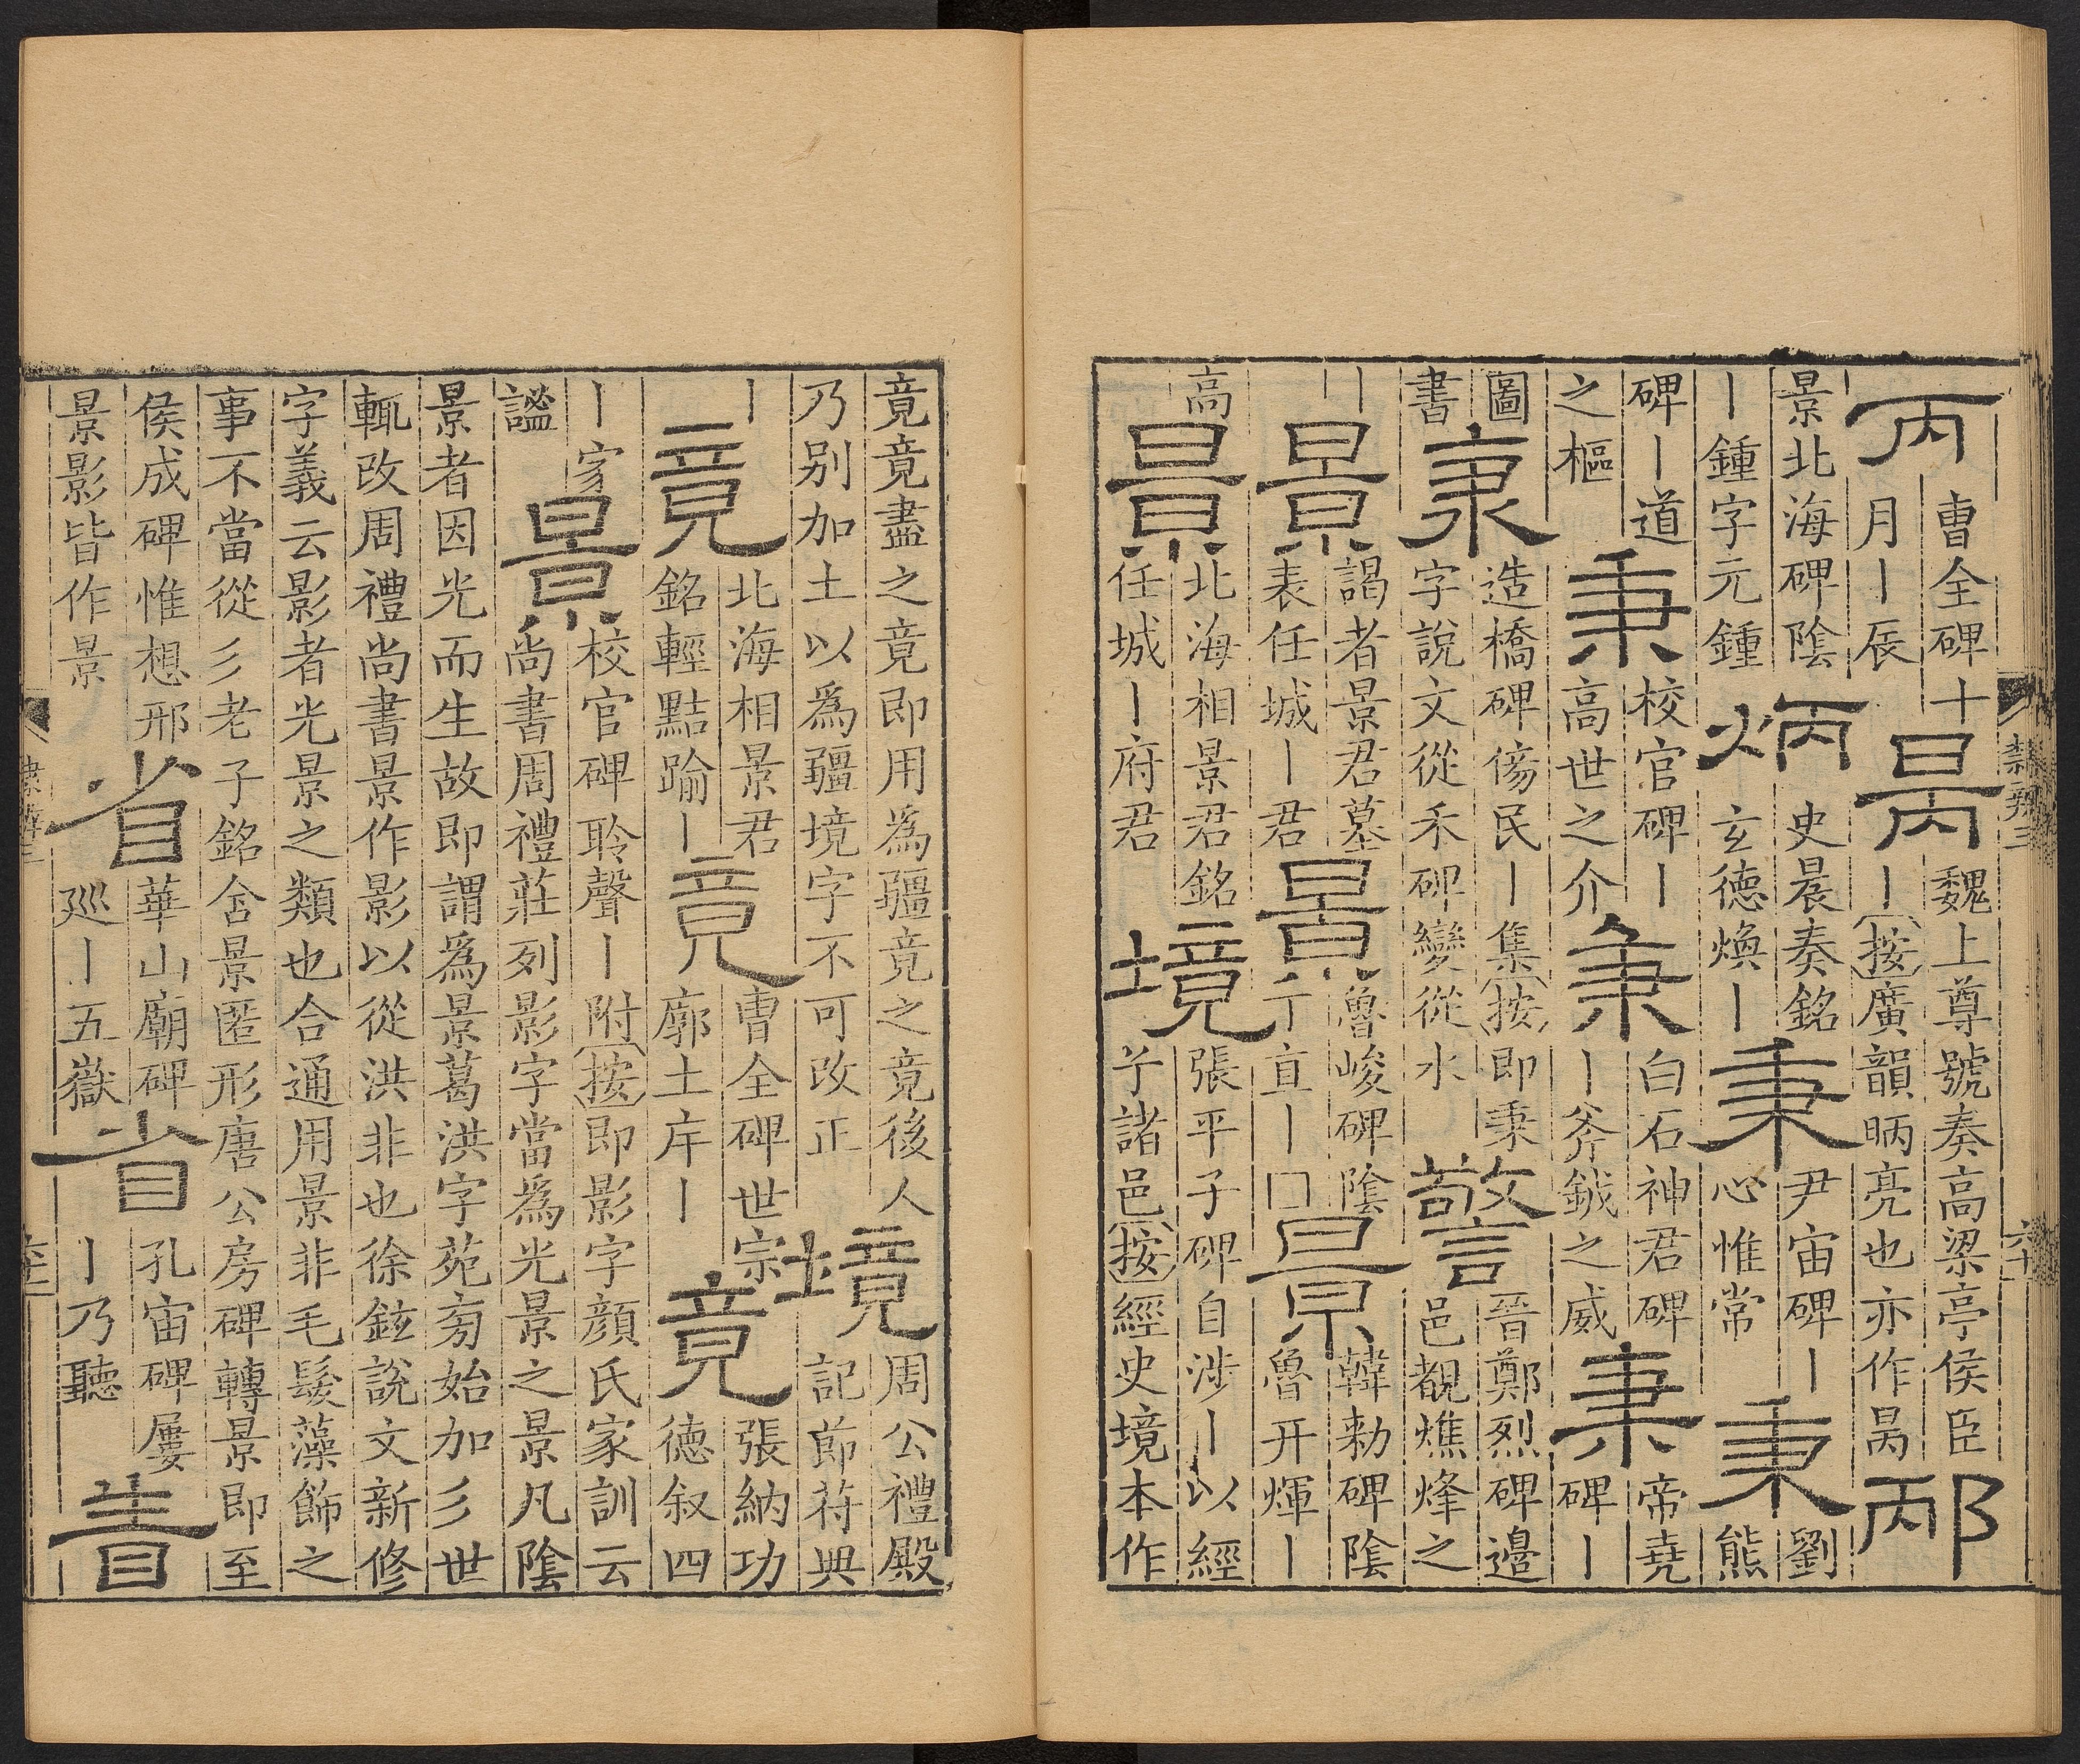 丙
曹全碑十
月丨辰
昺
魏上尊號奏高梁亭侯臣
丨按廣韻昞亮也亦作昺
邴
景北海碑陰
丨鍾字元鍾
炳
史晨奏銘
玄德煥丨
秉
尹宙碑丨
心惟常
秉
劉
熊
碑丨道
之樞
秉
校官碑丨
高世之介
秉
白石神君碑
丨斧鉞之威
秉
帝堯
碑丨
圖
書
秉
造橋碑傍民丨集按即秉
字說文從禾碑變從水
警
晉鄭烈碑邉
邑覩燋烽之
丨
景
謁者景君墓
表任城丨君
景
魯峻碑陰
亍直丨口
景
韓勑碑陰
魯开煇丨
高
景
北海相景君銘
任城丨府君
境
張平子碑自涉丨以經
諸邑按經史境本作
隸辨三
六十
竟竟盡之竟即用爲疆竟之竟後人
乃别加土以爲疆境字不可改正
境
周公禮殿
記節苻典
丨
竟
北海相景君
銘輕黠踰丨
竟
曹全碑世宗
廓土庈丨
竟
張納功
德叙四
丨家
謐
景
校官碑聆聲丨附按即影字顏氏家訓云
尚書周禮莊列影字當爲光景之景凡陰
景者因光而生故即謂爲景葛洪字苑㫄始加彡世
輒改周禮尚書景作影以從洪非也徐鉉說文新修
字義云影者光景之類也合通用景非毛髮藻飾之
事不當從彡老子銘含景匿形唐公房碑轉景即至
侯成碑惟想邢
景影皆作景
省
華山廟碑
廵丨五嶽
省
孔宙碑屢
丨乃聽
眚